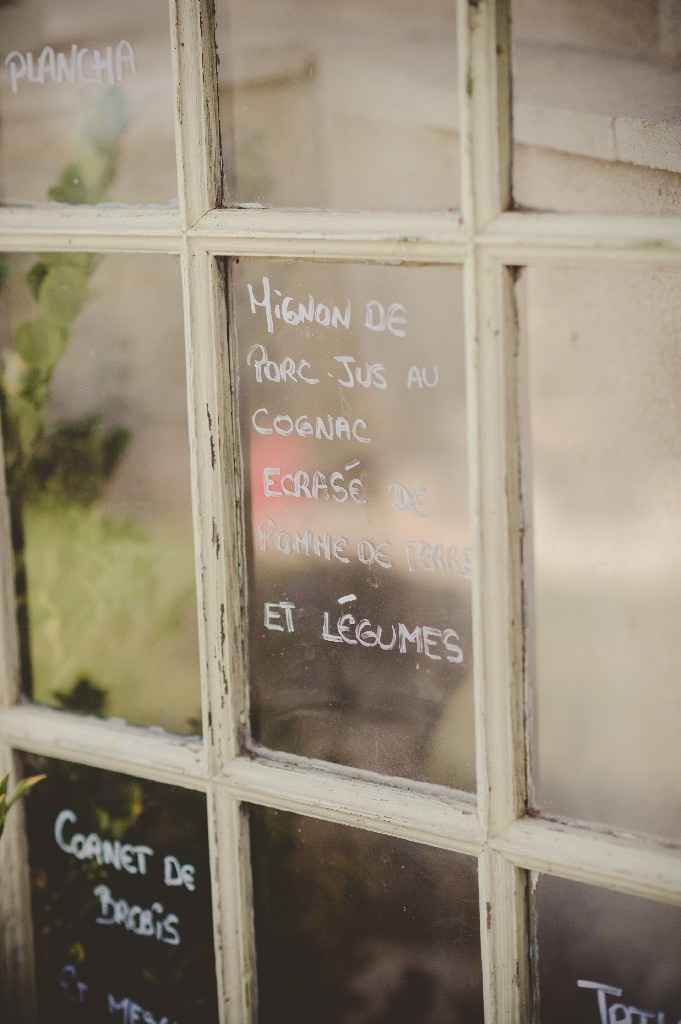 PLANCHA
MIGNON DE
PORC. JUS AU
COGNAC
ECRASÉ DE
POMME DE TERRE
ET LÉGUMES
CORNET DE
BREBIS
ET